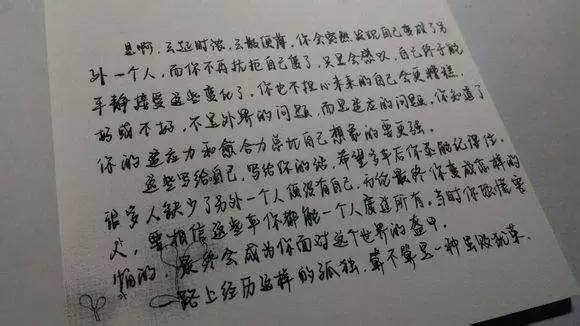 是啊，云起时浓，云散便薄，你会突然发现自己变成了另
外一个人，而你不再抗拒自己变了，只是会感叹，自己终于能
平静接受这些变化了，你也不担心未来的自己会更糟糕，
好或不好，不是外界的问题，而是适应的问题，你知道了
你的适应力和愈合力总比自己想象的要更强。
这些写给自己，写给你的话，希望多年后你还能记得住，
很多人缺少了另外一个人便没有自己，无论最终你变成怎样的
人，要相信这些年你都能一个人度过所有。当时你所憎害
怕的，最终会成为你面对这个世界的盔甲。
一路上经历这样的孤独，算不算是一种虽败犹荣